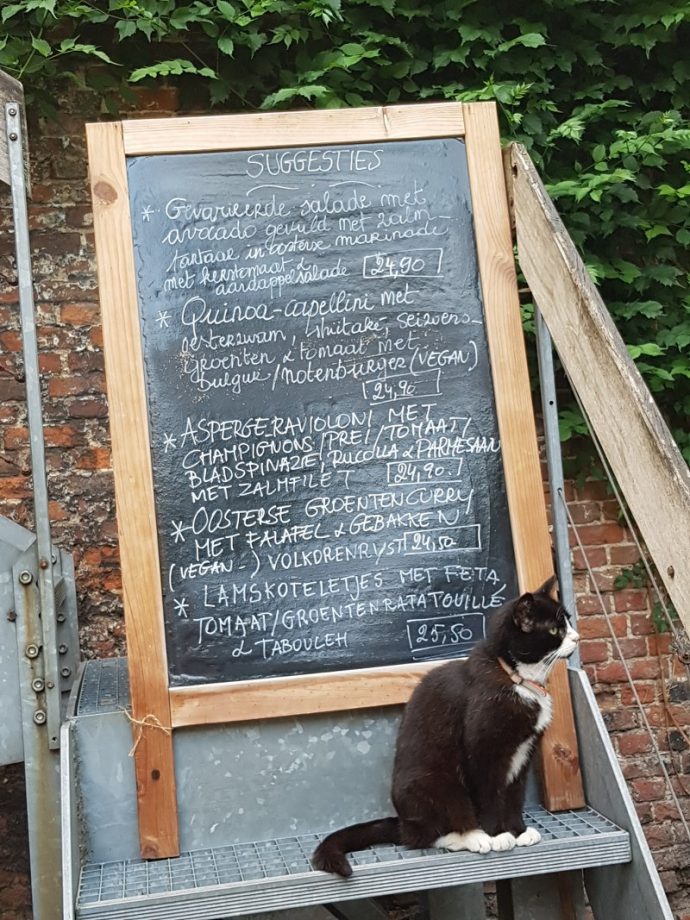 SUGGESTIES
* Gevarieerde salade met
avocado gevuld met zalm-
tartaar in oosterse marinade
met kerstomaat &
aardappelsalade 24,90
* Quinoa-capellini met
oesterzwam, shiitake, seizoens-
groenten & tomaat met
bulgur/notenburger (VEGAN)
24,90
* ASPERGE-RAVIOLONI MET
CHAMPIGNONS/PREI/TOMAAT/
BLADSPINAZIE, RUCOLA & PARMESAAN
MET ZALMFILET 24,90
* OOSTERSE GROENTENCURRY
MET FALAFEL & GEBAKKEN
(VEGAN-) VOLKORENRIJST 24,50
* LAMSKOTELETJES MET FETA,
TOMAAT/GROENTENRATATOUILLE
& TABOULEH 25,50